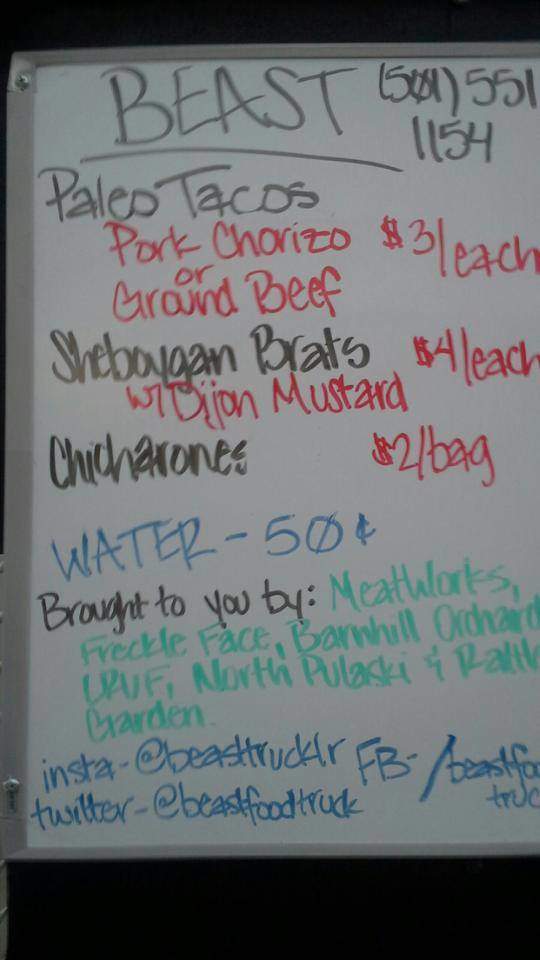 BEAST (501) 551
1154
Paleo Tacos
Pork Chorizo $3/each
or
Ground Beef
Sheboygan Brats $4/each
w/ Dijon Mustard
Chicharones $2/bag
WATER - 50¢
Brought to you by: MeatWorks,
Freckle Face, Barnhill Orchard
UPUF, North Pulaski &
Garden.
insta-@beasttrucklr FB- /beastfo
twitter-@beastfoodtruck truc